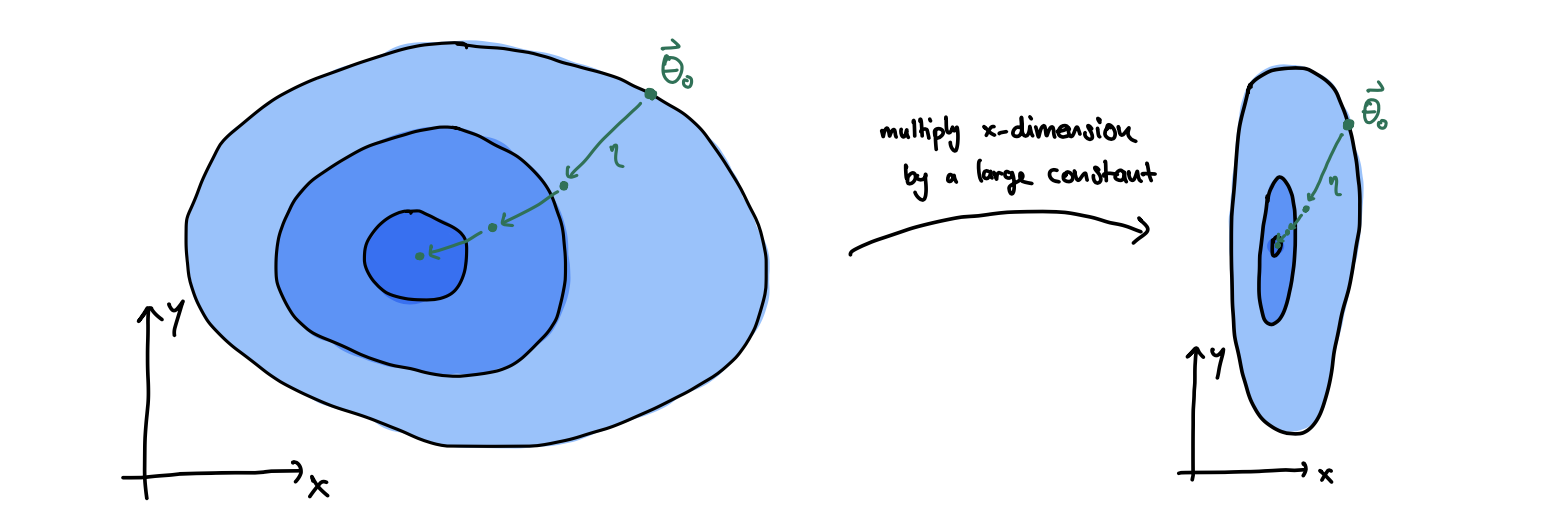 θ⃗₀
η
y
x
multiply x-dimension
by a large constant
θ⃗₀
η
y
x